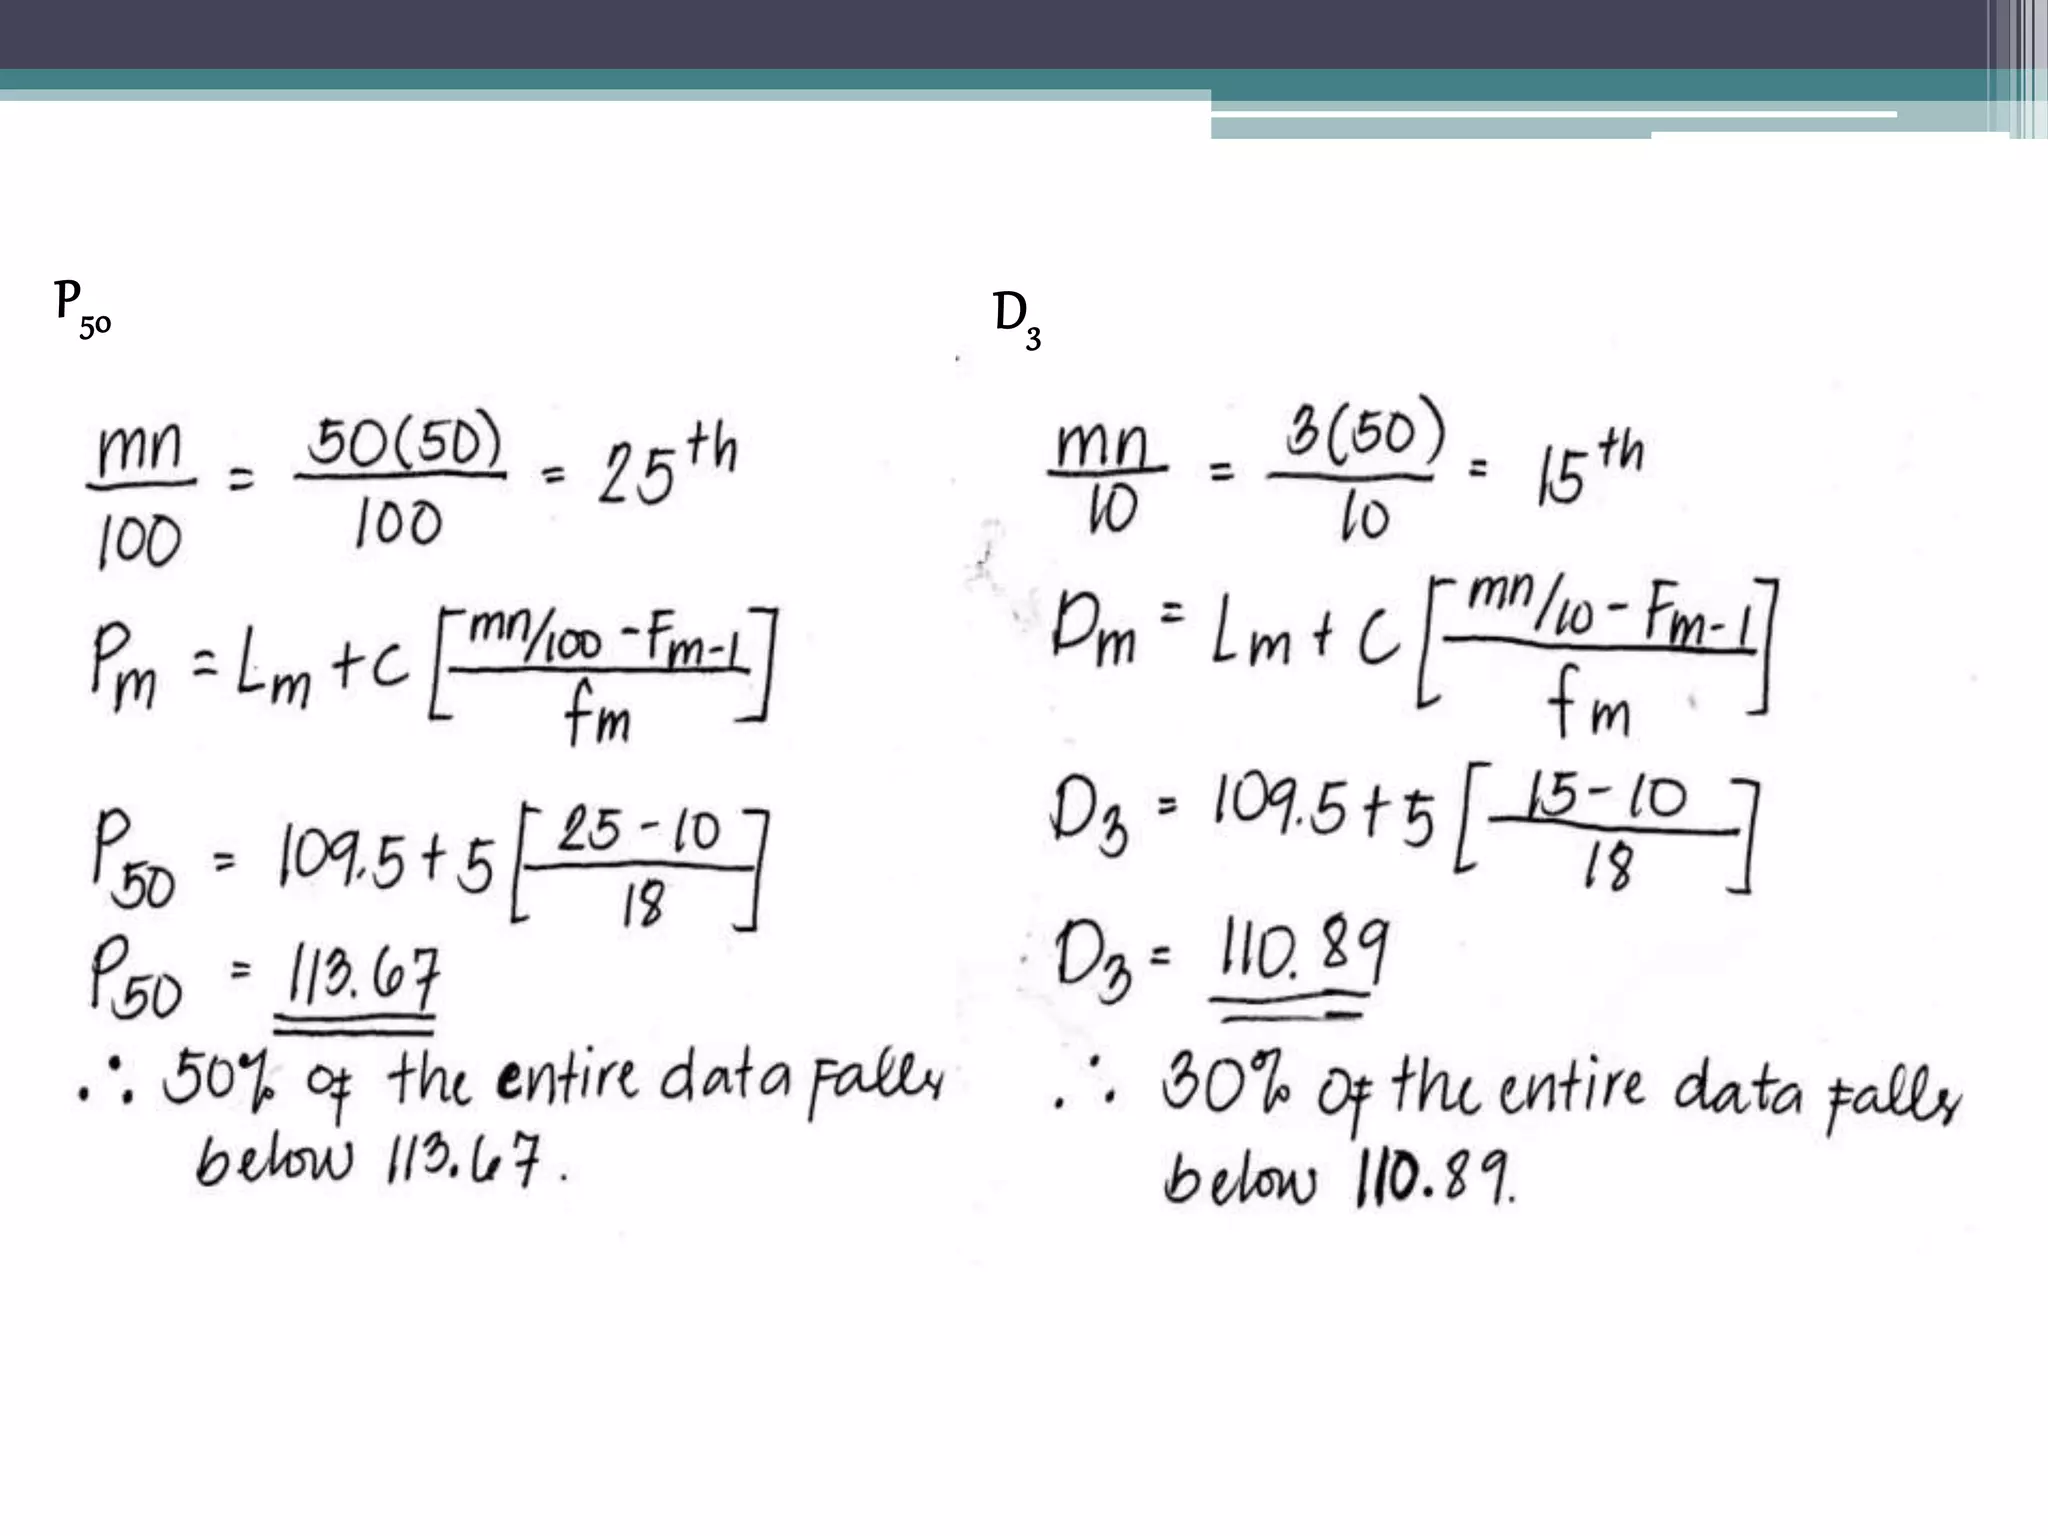 P50
mn/100 = 50(50)/100 = 25th
Pm = Lm + C [mn/100 - Fm-1 / fm]
P50 = 109.5 + 5 [25 - 10 / 18]
P50 = 113.67
∴ 50% of the entire data falls
below 113.67.
D3
mn/10 = 3(50)/10 = 15th
Dm = Lm + C [mn/10 - Fm-1 / fm]
D3 = 109.5 + 5 [15 - 10 / 18]
D3 = 110.89
∴ 30% of the entire data falls
below 110.89.